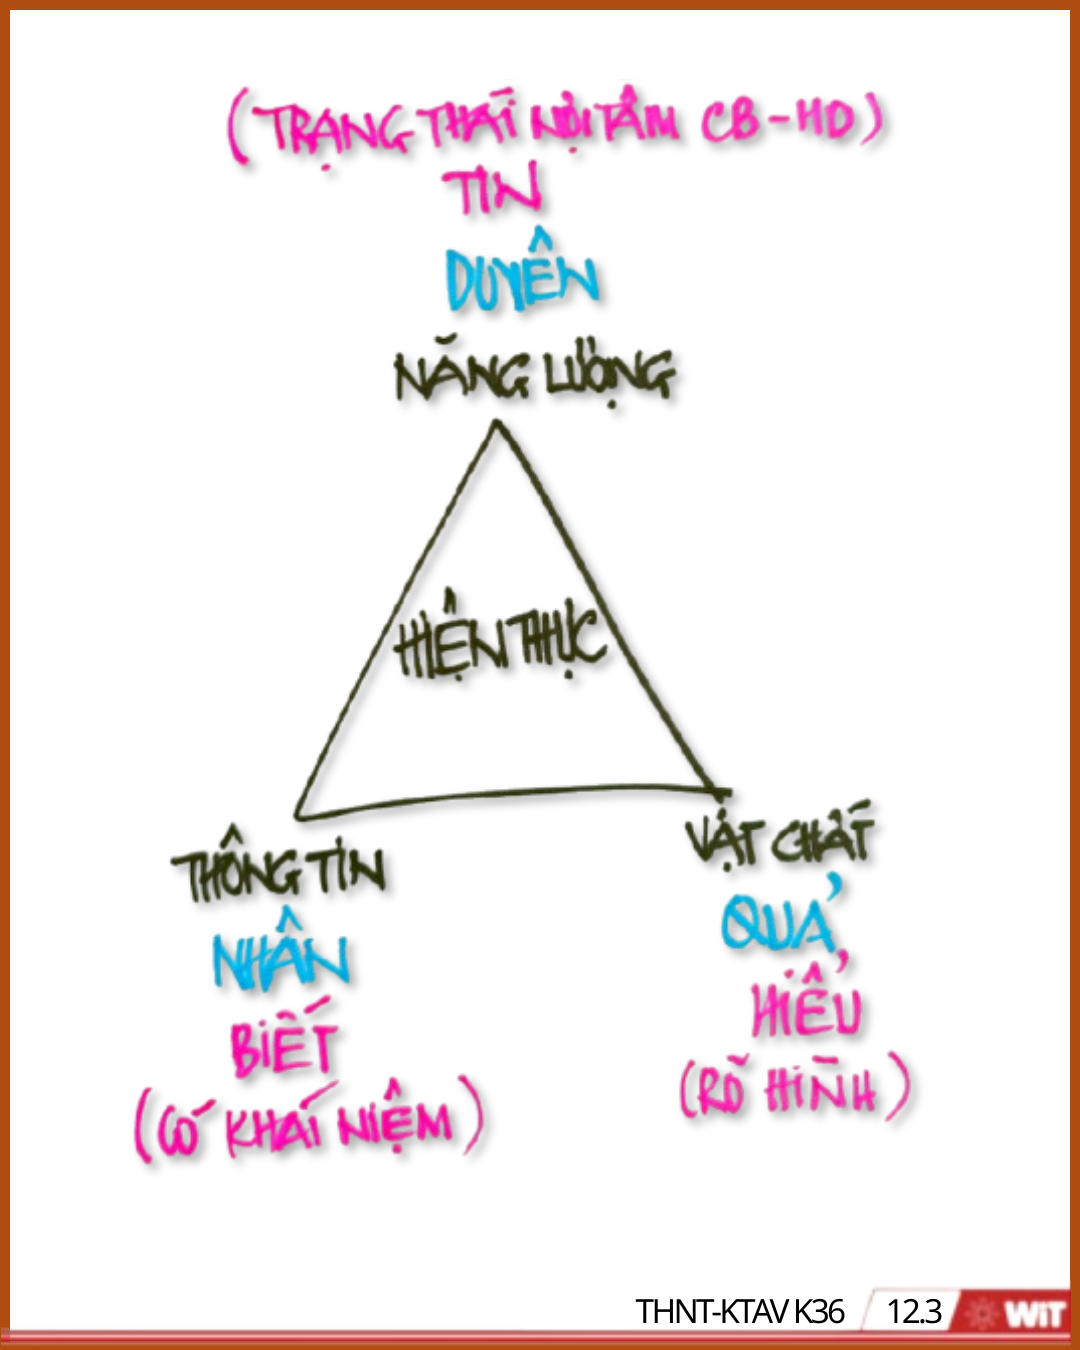 (TRẠNG THÁI NỘI TÂM CB-HD)
TIN
DUYÊN
NĂNG LƯỢNG
HIỆN THỰC
THÔNG TIN
NHÂN
BIẾT
(CÓ KHÁI NIỆM)
VẬT CHẤT
QUẢ
HIỂU
(RÕ HÌNH)
THNT-KTAV K36 12.3 WiT